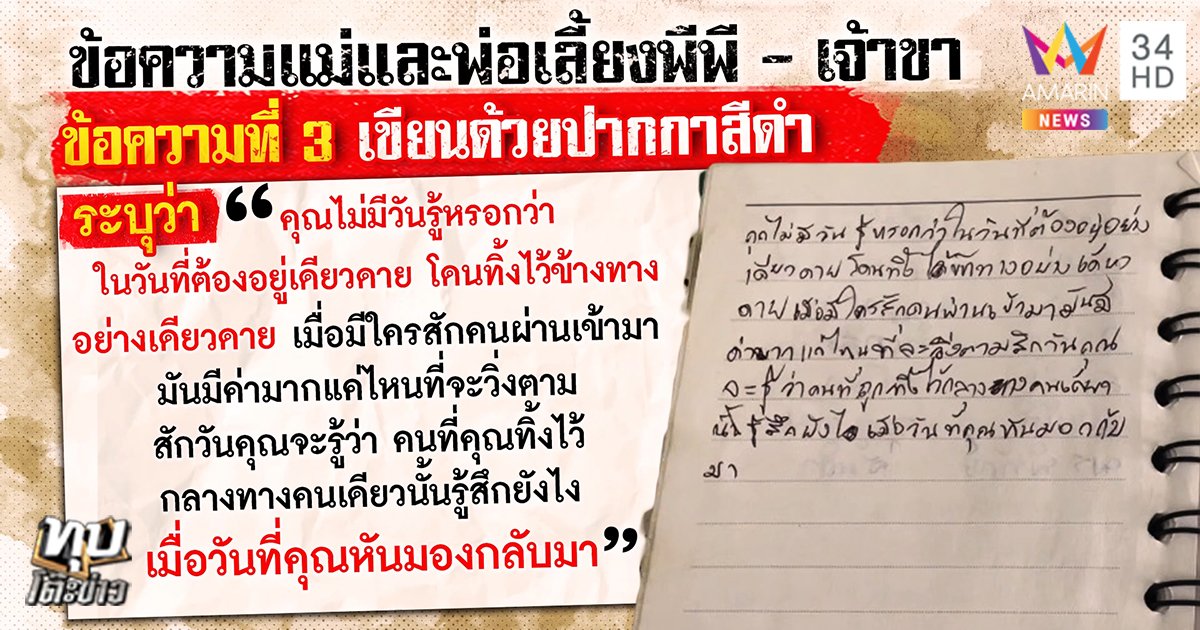 ข้อความแม่และพ่อเลี้ยงพีพี - เจ้าขา
AMARIN
NEWS
34
HD
ข้อความที่ 3 เขียนด้วยปากกาสีดำ
ระบุว่า “ คุณไม่มีวันรู้หรอกว่า
ในวันที่ต้องอยู่เดียวดาย โดนทิ้งไว้ข้างทาง
อย่างเดียวดาย เมื่อมีใครสักคนผ่านเข้ามา
มันมีค่ามากแค่ไหนที่จะวิ่งตาม
สักวันคุณจะรู้ว่า คนที่คุณทิ้งไว้
กลางทางคนเดียวนั้นรู้สึกยังไง
เมื่อวันที่คุณหันมองกลับมา ”
ทุบ
โต๊ะข่าว
คุณไม่มีวันรู้หรอกว่าในวันที่ต้องอยู่อย่าง
เดียวดายโดนทิ้งไว้ข้างทางอย่างเดียว
ดายเมื่อมีใครสักคนผ่านเข้ามามันมี
ค่ามากแค่ไหนที่จะวิ่งตามสักวันคุณ
จะรู้ว่าคนที่ถูกทิ้งไว้กลางทางคนเดียว
นั้นรู้สึกยังไงเมื่อวันที่คุณหันมองกลับ
มา